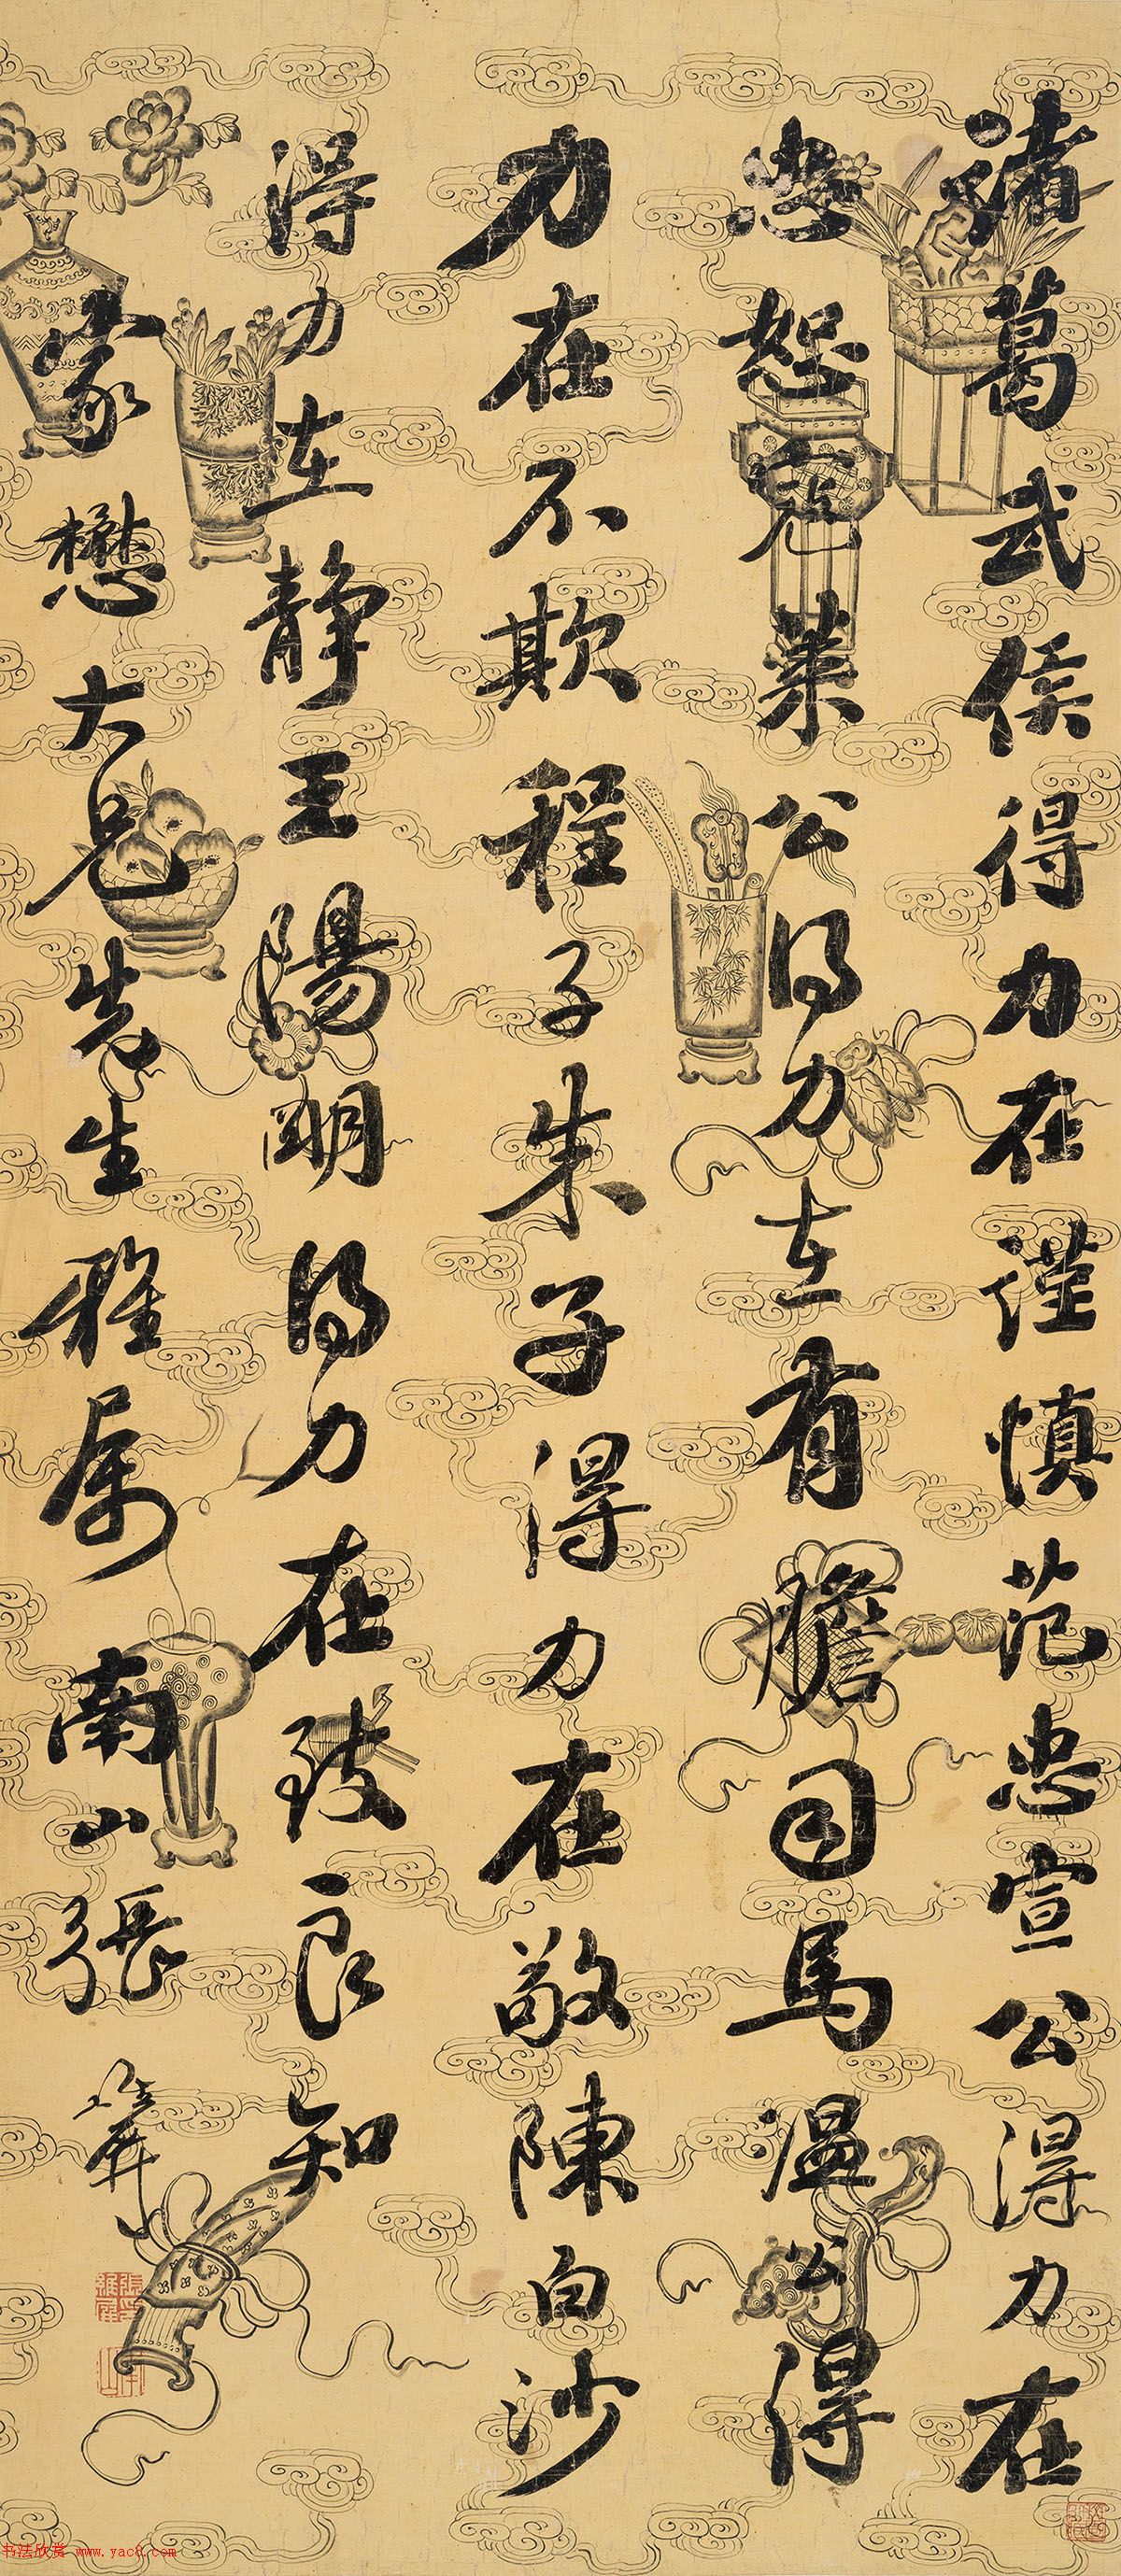 諸葛武侯得力在謹慎范忠宣公得力在
忠恕寇萊公得力在有膽司馬温公得
力在不欺程子朱子得力在敬陳白沙
得力在靜王陽明得力在致良知
家懋大兄先生雅属 南山張維屏
張維屏
南山
书法欣赏 www.yac8.com